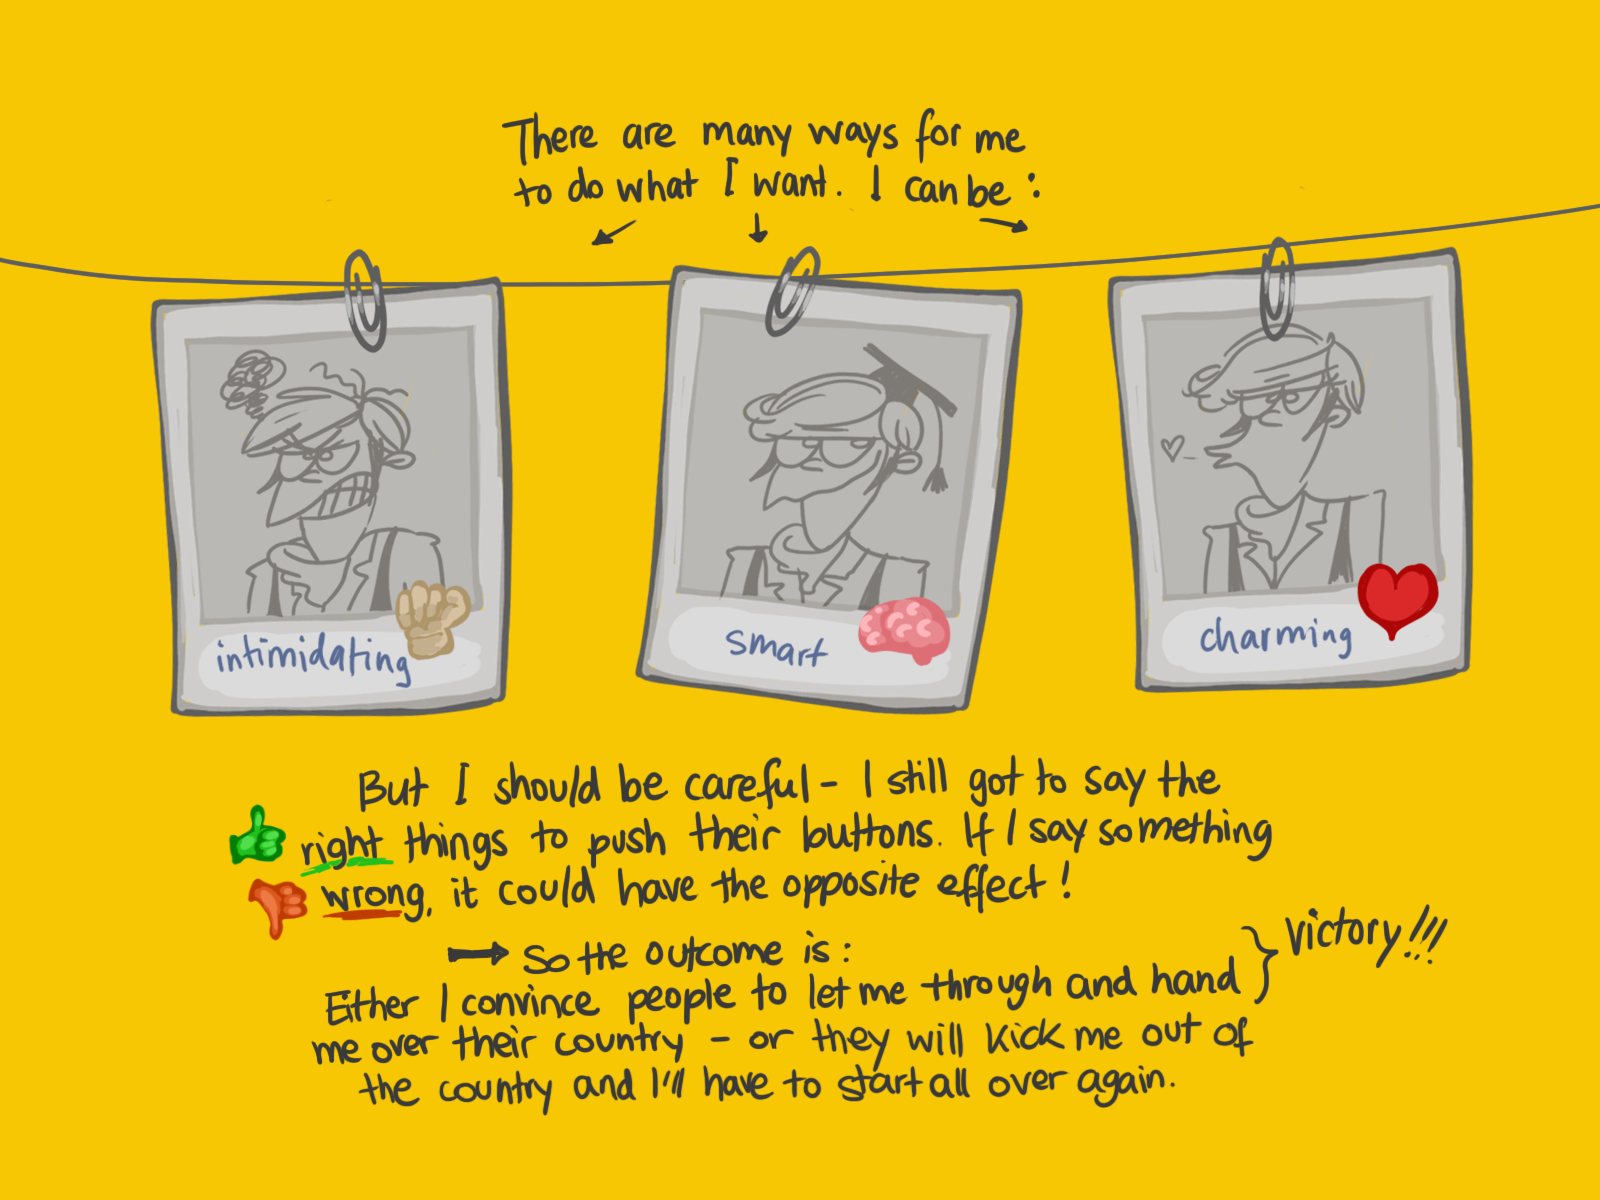 There are many ways for me
to do what I want. I can be:
intimidating
smart
charming
But I should be careful - I still got to say the
right things to push their buttons. If I say something
wrong, it could have the opposite effect!
So the outcome is:
Either I convince people to let me through and hand
me over their country - or they will kick me out of
the country and I'll have to start all over again.
Victory!!!